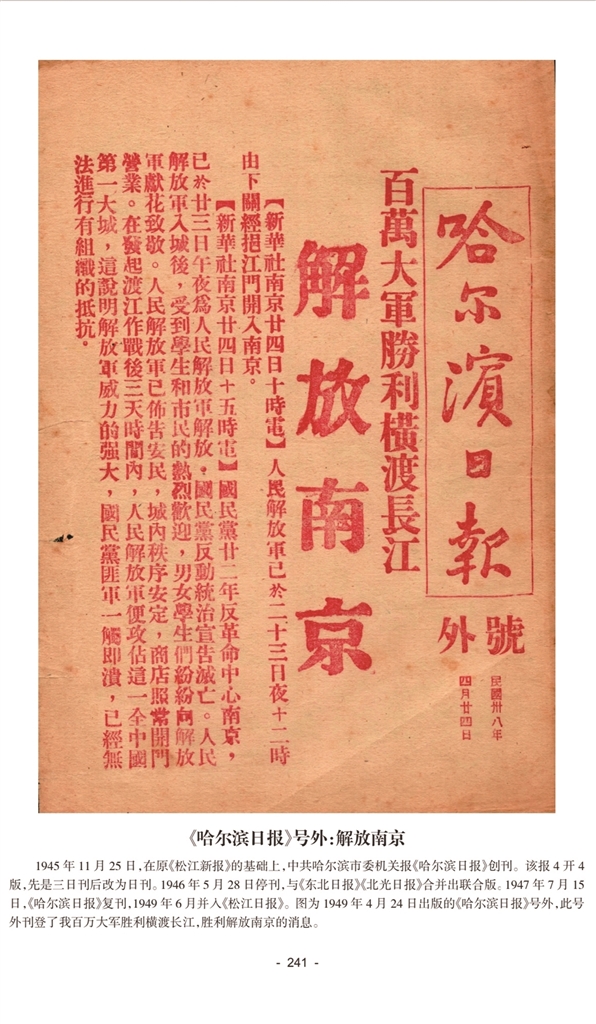 哈尔濱日報
號外
民國卅八年
四月廿四日
百萬大軍勝利橫渡長江
解放南京
【新華社南京廿四日十時電】人民解放軍已於二十三日夜十二時
由下關經挹江門開入南京。
【新華社南京廿四日十五時電】國民黨廿二年反革命中心南京，
已於廿三日午夜爲人民解放軍解放，國民黨反動統治宣告滅亡。人民
解放軍入城後，受到學生和市民的熱烈歡迎，男女學生們紛紛向解放
軍獻花致敬。人民解放軍已佈告安民，城內秩序安定，商店照常開門
營業。在發起渡江作戰後三天時間內，人民解放軍便攻佔這一全中國
第一大城，這說明解放軍威力的强大，國民黨匪軍一觸即潰，已經無
法進行有組織的抵抗。
《哈尔滨日报》号外：解放南京
1945 年 11 月 25 日，在原《松江新报》的基础上，中共哈尔滨市委机关报《哈尔滨日报》创刊。该报 4 开 4
版，先是三日刊后改为日刊。1946 年 5 月 28 日停刊，与《东北日报》《北光日报》合并出联合版。1947 年 7 月 15
日，《哈尔滨日报》复刊，1949 年 6 月并入《松江日报》。图为 1949 年 4 月 24 日出版的《哈尔滨日报》号外，此号
外刊登了我百万大军胜利横渡长江，胜利解放南京的消息。
- 241 -